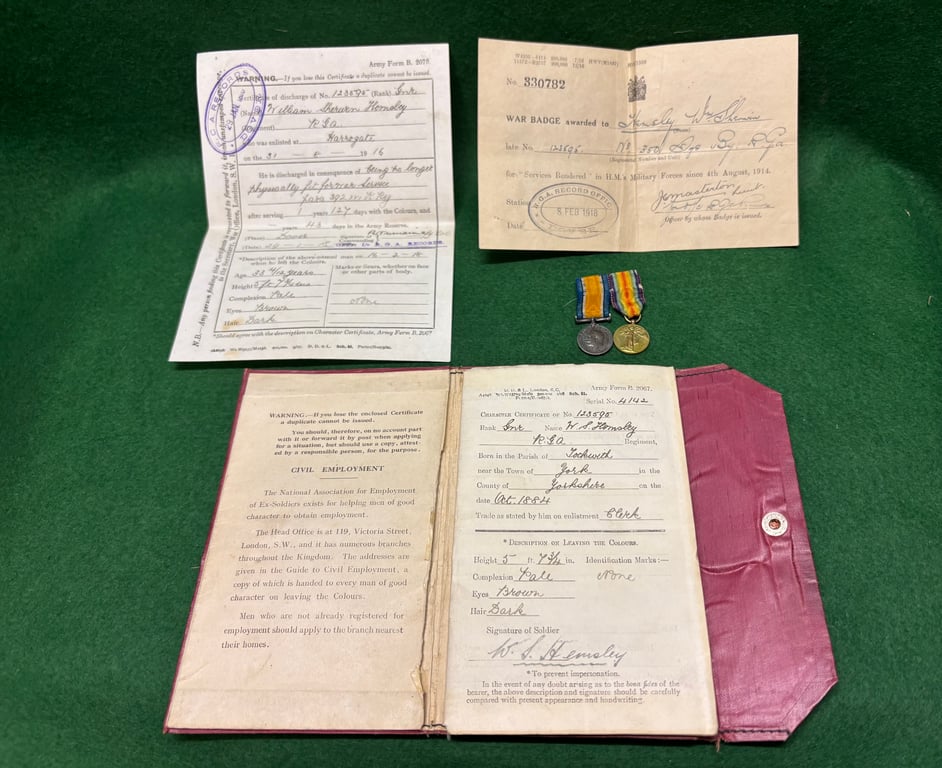 Army Form B. 2079
WARNING.—If you lose this Certificate a duplicate cannot be issued.
Certificate of discharge of No. 123595 (Rank) Gnr
(Name) William Sherwin Hemsley
(Regiment) R.G.A.
who was enlisted at Harrogate
on the 31 - - 1916
He is discharged in consequence of being no longer
physically fit for war service
Para 392 XVI K.R.
after serving 1 years 127 days with the Colours, and
— years 43 days in the Army Reserve.
(Place) Dover Signature of Commanding
(Date) 29-1-18 R.G.A. RECORDS.
*Description of the above-named man on 16-2-18
when he left the Colours.
Age 33 4/12 years
Height 5 ft 7 3/4 ins
Complexion Pale
Eyes Brown
Hair Dark
Marks or Scars, whether on face
or other parts of body.
None
*Should agree with the description on Character Certificate, Army Form B. 2067
N.B.—Any person finding this Certificate is requested to forward it, in an unstamped
to the Secretary, War Office, London, S.W.
R.G.A. RECORDS
DOVER
No. 330782
WAR BADGE awarded to Hemsley Wm Sherwin
Gnr
late No. 123595 No 350 Sge By. RGA
(Regimental Number and Unit)
for "Services Rendered" in H.M.'s Military Forces since 4th August, 1914.
Station
Date
R.G.A. RECORD OFFICE
8 FEB 1918
Lieut.
Officer by whom Badge is issued.
WARNING.—If you lose the enclosed Certificate
a duplicate cannot be issued.
You should, therefore, on no account part
with it or forward it by post when applying
for a situation, but should use a copy, attest-
ed by a responsible person, for the purpose.
CIVIL EMPLOYMENT
The National Association for Employment
of Ex-Soldiers exists for helping men of good
character to obtain employment.
The Head Office is at 119, Victoria Street,
London, S.W., and it has numerous branches
throughout the Kingdom. The addresses are
given in the Guide to Civil Employment, a
copy of which is handed to every man of good
character on leaving the Colours.
Men who are not already registered for
employment should apply to the branch nearest
their homes.
Army Form B. 2067.
Serial No. 4142
CHARACTER CERTIFICATE OF No. 123595
Rank Gnr Name W. S. Hemsley
RGA Regiment,
Born in the Parish of Tockwith
near the Town of York in the
County of Yorkshire on the
date Oct. 1884
Trade as stated by him on enlistment Clerk
*DESCRIPTION ON LEAVING THE COLOURS.
Height 5 ft. 7 3/4 in. Identification Marks:—
Complexion Pale None
Eyes Brown
Hair Dark
Signature of Soldier
W. S. Hemsley
*To prevent impersonation.
In the event of any doubt arising as to the bona fides of the
bearer, the above description and signature should be carefully
compared with present appearance and handwriting.